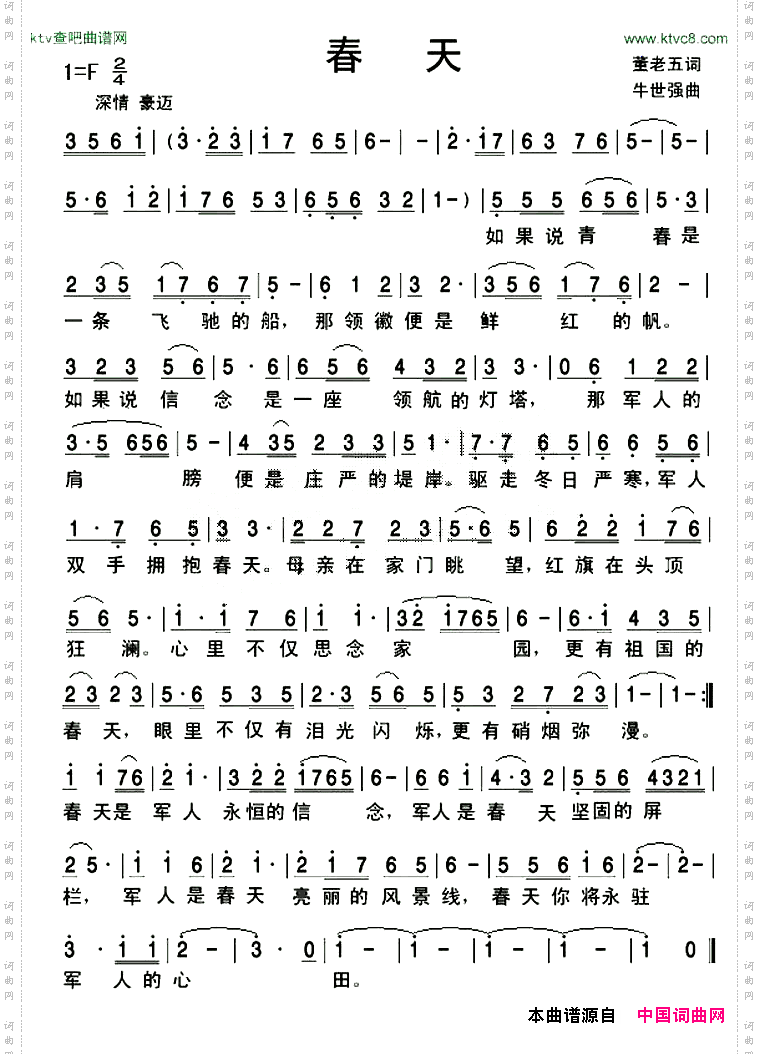 ktv查吧曲谱网
www.ktvc8.com
春 天
1=F 2/4
董老五词
牛世强曲
深情 豪迈
3 5 6 1 | ( 3 · 2 3 | 1 7 6 5 | 6 - | - | 2 · 1 7 | 6 3 7 6 | 5 - | 5 - |
5 · 6 1 2 | 1 7 6 5 3 | 6 5 6 3 2 | 1 - ) | 5 5 5 6 5 6 | 5 · 3 |
如 果 说 青 春 是
2 3 5 1 7 6 7 | 5 - | 6 1 2 | 3 2 · | 3 5 6 1 7 6 | 2 - |
一 条 飞 驰 的 船， 那 领 徽 便 是 鲜 红 的 帆。
3 2 3 5 6 | 5 · 6 | 6 5 6 4 3 2 | 3 3 · | 0 6 1 2 2 |
如 果 说 信 念 是 一 座 领 航 的 灯 塔， 那 军 人 的
3 · 5 6 5 6 | 5 - | 4 3 5 2 3 3 | 5 1 · | 7 · 7 6 5 | 6 6 5 6 |
肩 膀 便 是 庄 严 的 堤 岸。 驱 走 冬 日 严 寒， 军 人
1 · 7 6 5 | 3 3 · | 2 2 7 2 3 | 5 · 6 5 | 6 2 2 1 7 6 |
双 手 拥 抱 春 天。 母 亲 在 家 门 眺 望， 红 旗 在 头 顶
5 6 5 · | 1 · 1 7 6 | 5 6 5 3 · | 3 2 1 7 6 5 | 6 - | 6 · 1 4 3 5 |
狂 澜。 心 里 不 仅 思 念 家 园， 更 有 祖 国 的
2 3 2 3 | 5 · 6 5 3 5 | 3 · 2 5 6 5 | 5 3 2 7 2 3 | 1 - | 1 - :||
春 天， 眼 里 不 仅 有 泪 光 闪 烁， 更 有 硝 烟 弥 漫。
1 1 7 6 | 2 1 · | 3 2 2 1 7 6 5 | 6 - | 6 6 1 | 4 · 3 2 | 5 5 6 4 3 2 1 |
春 天 是 军 人 永 恒 的 信 念， 军 人 是 春 天 坚 固 的 屏
2 5 · | 1 1 6 | 2 1 · | 2 1 2 | 3 5 · | 6 5 6 | 1 6 | 2 - | 2 - |
栏， 军 人 是 春 天 亮 丽 的 风 景 线， 春 天 你 将 永 驻
3 · 1 1 | 2 - | 3 · 0 | 1 - | 1 - | 1 - | 1 - | 1 0 ||
军 人 的 心 田。
本曲谱源自 中国词曲网
词曲网